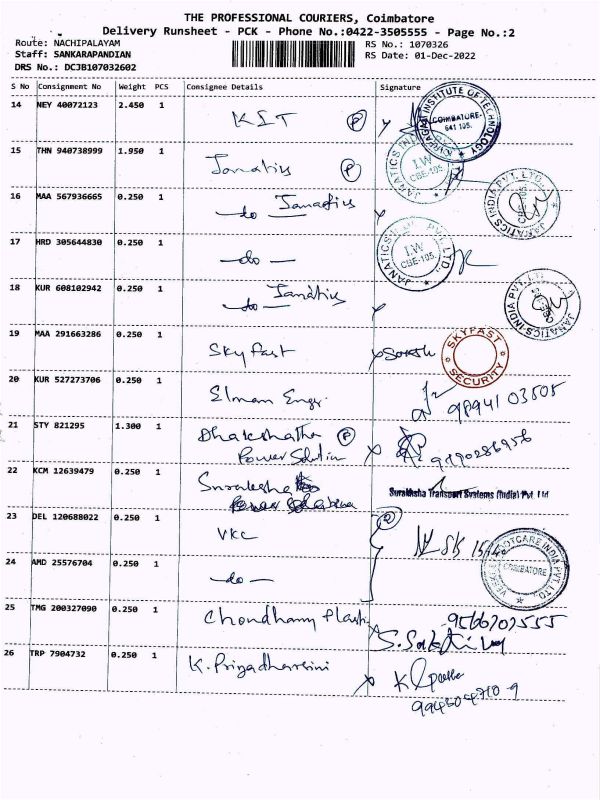 THE PROFESSIONAL COURIERS, Coimbatore
Delivery Runsheet - PCK - Phone No.:0422-3505555 - Page No.:2
Route: NACHIPALAYAM RS No.: 1070326
Staff: SANKARAPANDIAN RS Date: 01-Dec-2022
DRS No.: DCJB107032602
S No Consignment No Weight PCS Consignee Details Signature
14 NEY 40072123 2.450 1 KIT P
INSTITUTE OF TECHNOLOGY COIMBATORE- 641 105.
15 THN 940738999 1.950 1 Janatics P
JANATICS I.W CBE-105.
16 MAA 567936665 0.250 1 do Janatics
JANATICS INDIA PVT. LTD.
17 HRD 305644830 0.250 1 do
JANATICS PVT. LTD. I.W CBE-105.
18 KUR 608102942 0.250 1 do Janatics
JANATICS INDIA PVT. LTD.
19 MAA 291663286 0.250 1 Sky fast
SKYFAST SECURITY
20 KUR 527273706 0.250 1 Elman Engr. 98941 03505
21 STY 821295 1.300 1 Dhakshatha P
Power Solution
22 KCM 12639479 0.250 1
Suraksha Transport Systems (India) Pvt. Ltd
23 DEL 120688022 0.250 1 VKC P
24 AMD 25576704 0.250 1 do
FOOTCARE INDIA PVT. LTD. COIMBATORE
25 TMG 200327090 0.250 1 Choudhary Plasti 9566202555
26 TRP 7904732 0.250 1 K. Priyadharsini